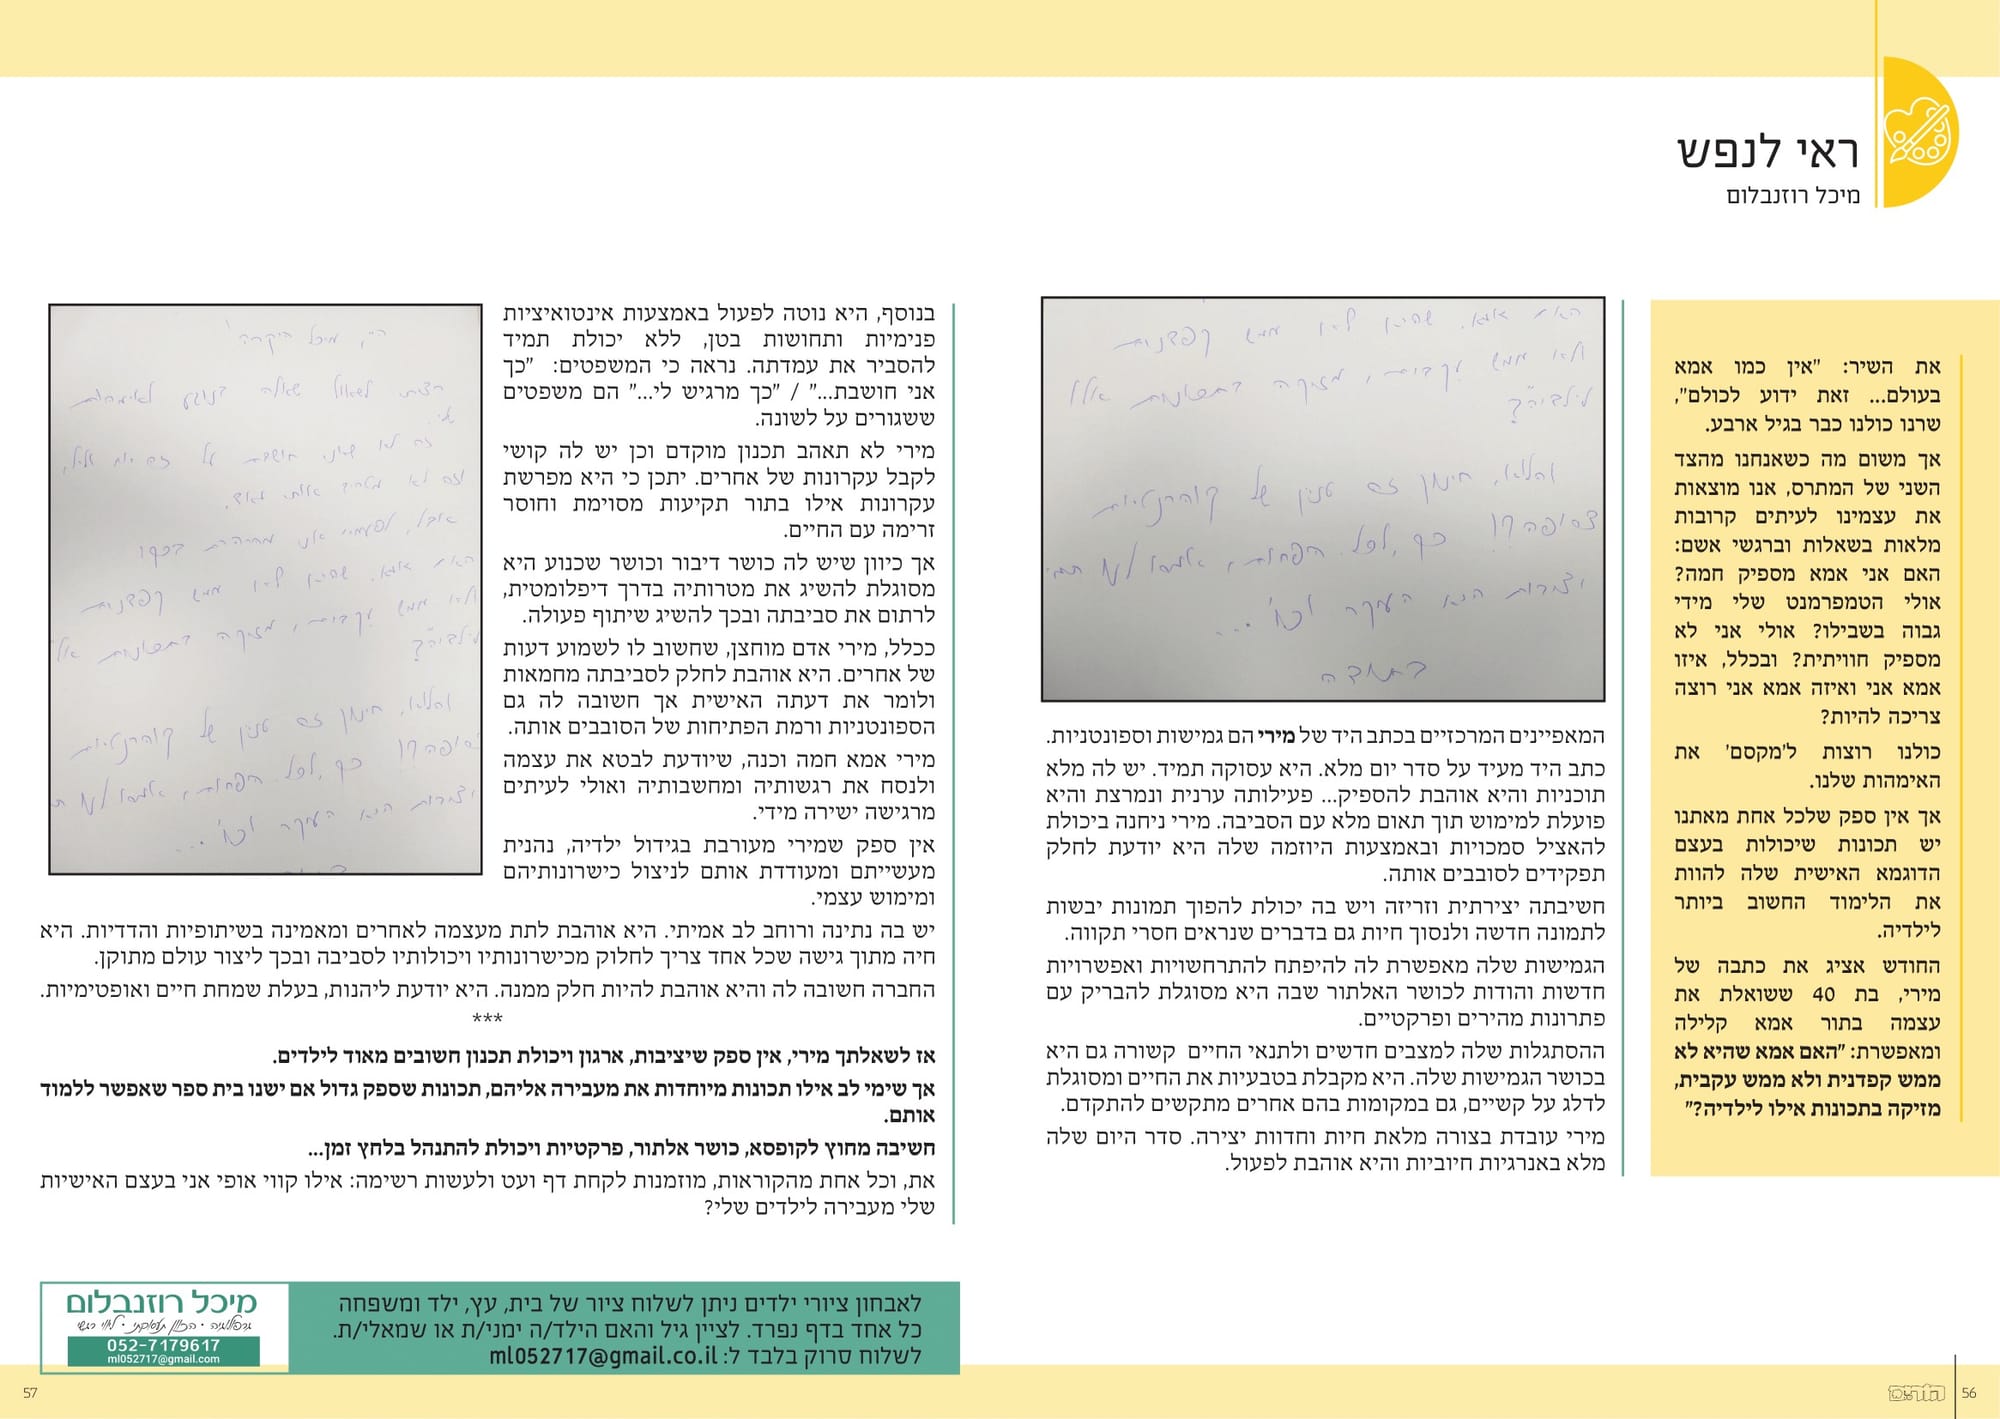 ראי לנפש
מיכל רוזנבלום
את השיר: "אין כמו אמא
בעולם... זאת ידוע לכולם",
שרנו כולנו כבר בגיל ארבע.
אך משום מה כשאנחנו מהצד
השני של המתרס, אנו מוצאות
את עצמינו לעיתים קרובות
מלאות בשאלות וברגשי אשם:
האם אני אמא מספיק חמה?
אולי הטמפרמנט שלי מידי
גבוה בשבילו? אולי אני לא
מספיק חוויתית? ובכלל, איזו
אמא אני ואיזה אמא אני רוצה
צריכה להיות?
כולנו רוצות ל'מקסם' את
האימהות שלנו.
אך אין ספק שלכל אחת מאתנו
יש תכונות שיכולות בעצם
הדוגמא האישית שלה להוות
את הלימוד החשוב ביותר
לילדיה.
החודש אציג את כתבה של
מירי, בת 40 ששואלת את
עצמה בתור אמא קלילה
ומאפשרת: "האם אמא שהיא לא
ממש קפדנית ולא ממש עקבית,
מזיקה בתכונות אילו לילדיה?"
האם אמא, שהיא לא ממש קפדנית
ולא ממש עקבית, מזיקה בתכונות אלו
לילדיה?
והלא, חינוך זה
של
כך לכל הפחות,
היא העיקר וכו'...
בתודה
המאפיינים המרכזיים בכתב היד של מירי הם גמישות וספונטניות.
כתב היד מעיד על סדר יום מלא. היא עסוקה תמיד. יש לה מלא
תוכניות והיא אוהבת להספיק... פעילותה ערנית ונמרצת והיא
פועלת למימוש תוך תאום מלא עם הסביבה. מירי ניחנה ביכולת
להאציל סמכויות ובאמצעות היוזמה שלה היא יודעת לחלק
תפקידים לסובבים אותה.
חשיבתה יצירתית וזריזה ויש בה יכולת להפוך תמונות יבשות
לתמונה חדשה ולנסוך חיות גם בדברים שנראים חסרי תקווה.
הגמישות שלה מאפשרת לה להיפתח להתרחשויות ואפשרויות
חדשות והודות לכושר האלתור שבה היא מסוגלת להבריק עם
פתרונות מהירים ופרקטיים.
ההסתגלות שלה למצבים חדשים ולתנאי החיים קשורה גם היא
בכושר הגמישות שלה. היא מקבלת בטבעיות את החיים ומסוגלת
לדלג על קשיים, גם במקומות בהם אחרים מתקשים להתקדם.
מירי עובדת בצורה מלאת חיות וחדוות יצירה. סדר היום שלה
מלא באנרגיות חיוביות והיא אוהבת לפעול.
בנוסף, היא נוטה לפעול באמצעות אינטואיציות
פנימיות ותחושות בטן, ללא יכולת תמיד
להסביר את עמדתה. נראה כי המשפטים: "כך
אני חושבת..." / "כך מרגיש לי..." הם משפטים
ששגורים על לשונה.
מירי לא תאהב תכנון מוקדם וכן יש לה קושי
לקבל עקרונות של אחרים. יתכן כי היא מפרשת
עקרונות אילו בתור תקיעות מסוימת וחוסר
זרימה עם החיים.
אך כיוון שיש לה כושר דיבור וכושר שכנוע היא
מסוגלת להשיג את מטרותיה בדרך דיפלומטית,
לרתום את סביבתה ובכך להשיג שיתוף פעולה.
ככלל, מירי אדם מוחצן, שחשוב לו לשמוע דעות
של אחרים. היא אוהבת לחלק לסביבתה מחמאות
ולומר את דעתה האישית אך חשובה לה גם
הספונטניות ורמת הפתיחות של הסובבים אותה.
מירי אמא חמה וכנה, שיודעת לבטא את עצמה
ולנסח את רגשותיה ומחשבותיה ואולי לעיתים
מרגישה ישירה מידי.
אין ספק שמירי מעורבת בגידול ילדיה, נהנית
מעשייתם ומעודדת אותם לניצול כישרונותיהם
ומימוש עצמי.
יש בה נתינה ורוחב לב אמיתי. היא אוהבת לתת מעצמה לאחרים ומאמינה בשיתופיות והדדיות. היא
חיה מתוך גישה שכל אחד צריך לחלוק מכישרונותיו ויכולותיו לסביבה ובכך ליצור עולם מתוקן.
החברה חשובה לה והיא אוהבת להיות חלק ממנה. היא יודעת ליהנות, בעלת שמחת חיים ואופטימיות.
***
אז לשאלתך מירי, אין ספק שיציבות, ארגון ויכולת תכנון חשובים מאוד לילדים.
אך שימי לב אילו תכונות מיוחדות את מעבירה אליהם, תכונות שספק גדול אם ישנו בית ספר שאפשר ללמוד
אותם.
חשיבה מחוץ לקופסא, כושר אלתור, פרקטיות ויכולת להתנהל בלחץ זמן...
את, וכל אחת מהקוראות, מוזמנות לקחת דף ועט ולעשות רשימה: אילו קווי אופי אני בעצם האישיות
שלי מעבירה לילדים שלי?
מיכל היקרה
רציתי לשאול שאלה בנוגע לאימהות
שלי.
זה לא שאני חושבת על זה יום וליל,
וזה לא מטריד אותי מאוד,
אבל, לפעמים אני מהרהרת בכך:
האם אמא, שהיא לא ממש קפדנית
ולא ממש עקבית, מזיקה בתכונות
לילדיה?
והלא, חינוך זה
של
כך לכל הפחות,
היא העיקר וכו'...
לאבחון ציורי ילדים ניתן לשלוח ציור של בית, עץ, ילד ומשפחה
כל אחד בדף נפרד. לציין גיל והאם הילד/ה ימני/ת או שמאלי/ת.
לשלוח סרוק בלבד ל: ml052717@gmail.co.il
מיכל רוזנבלום
גרפולוגיה • הכוון תעסוקתי • ליווי רגשי
052-7179617
ml052717@gmail.com
56
57